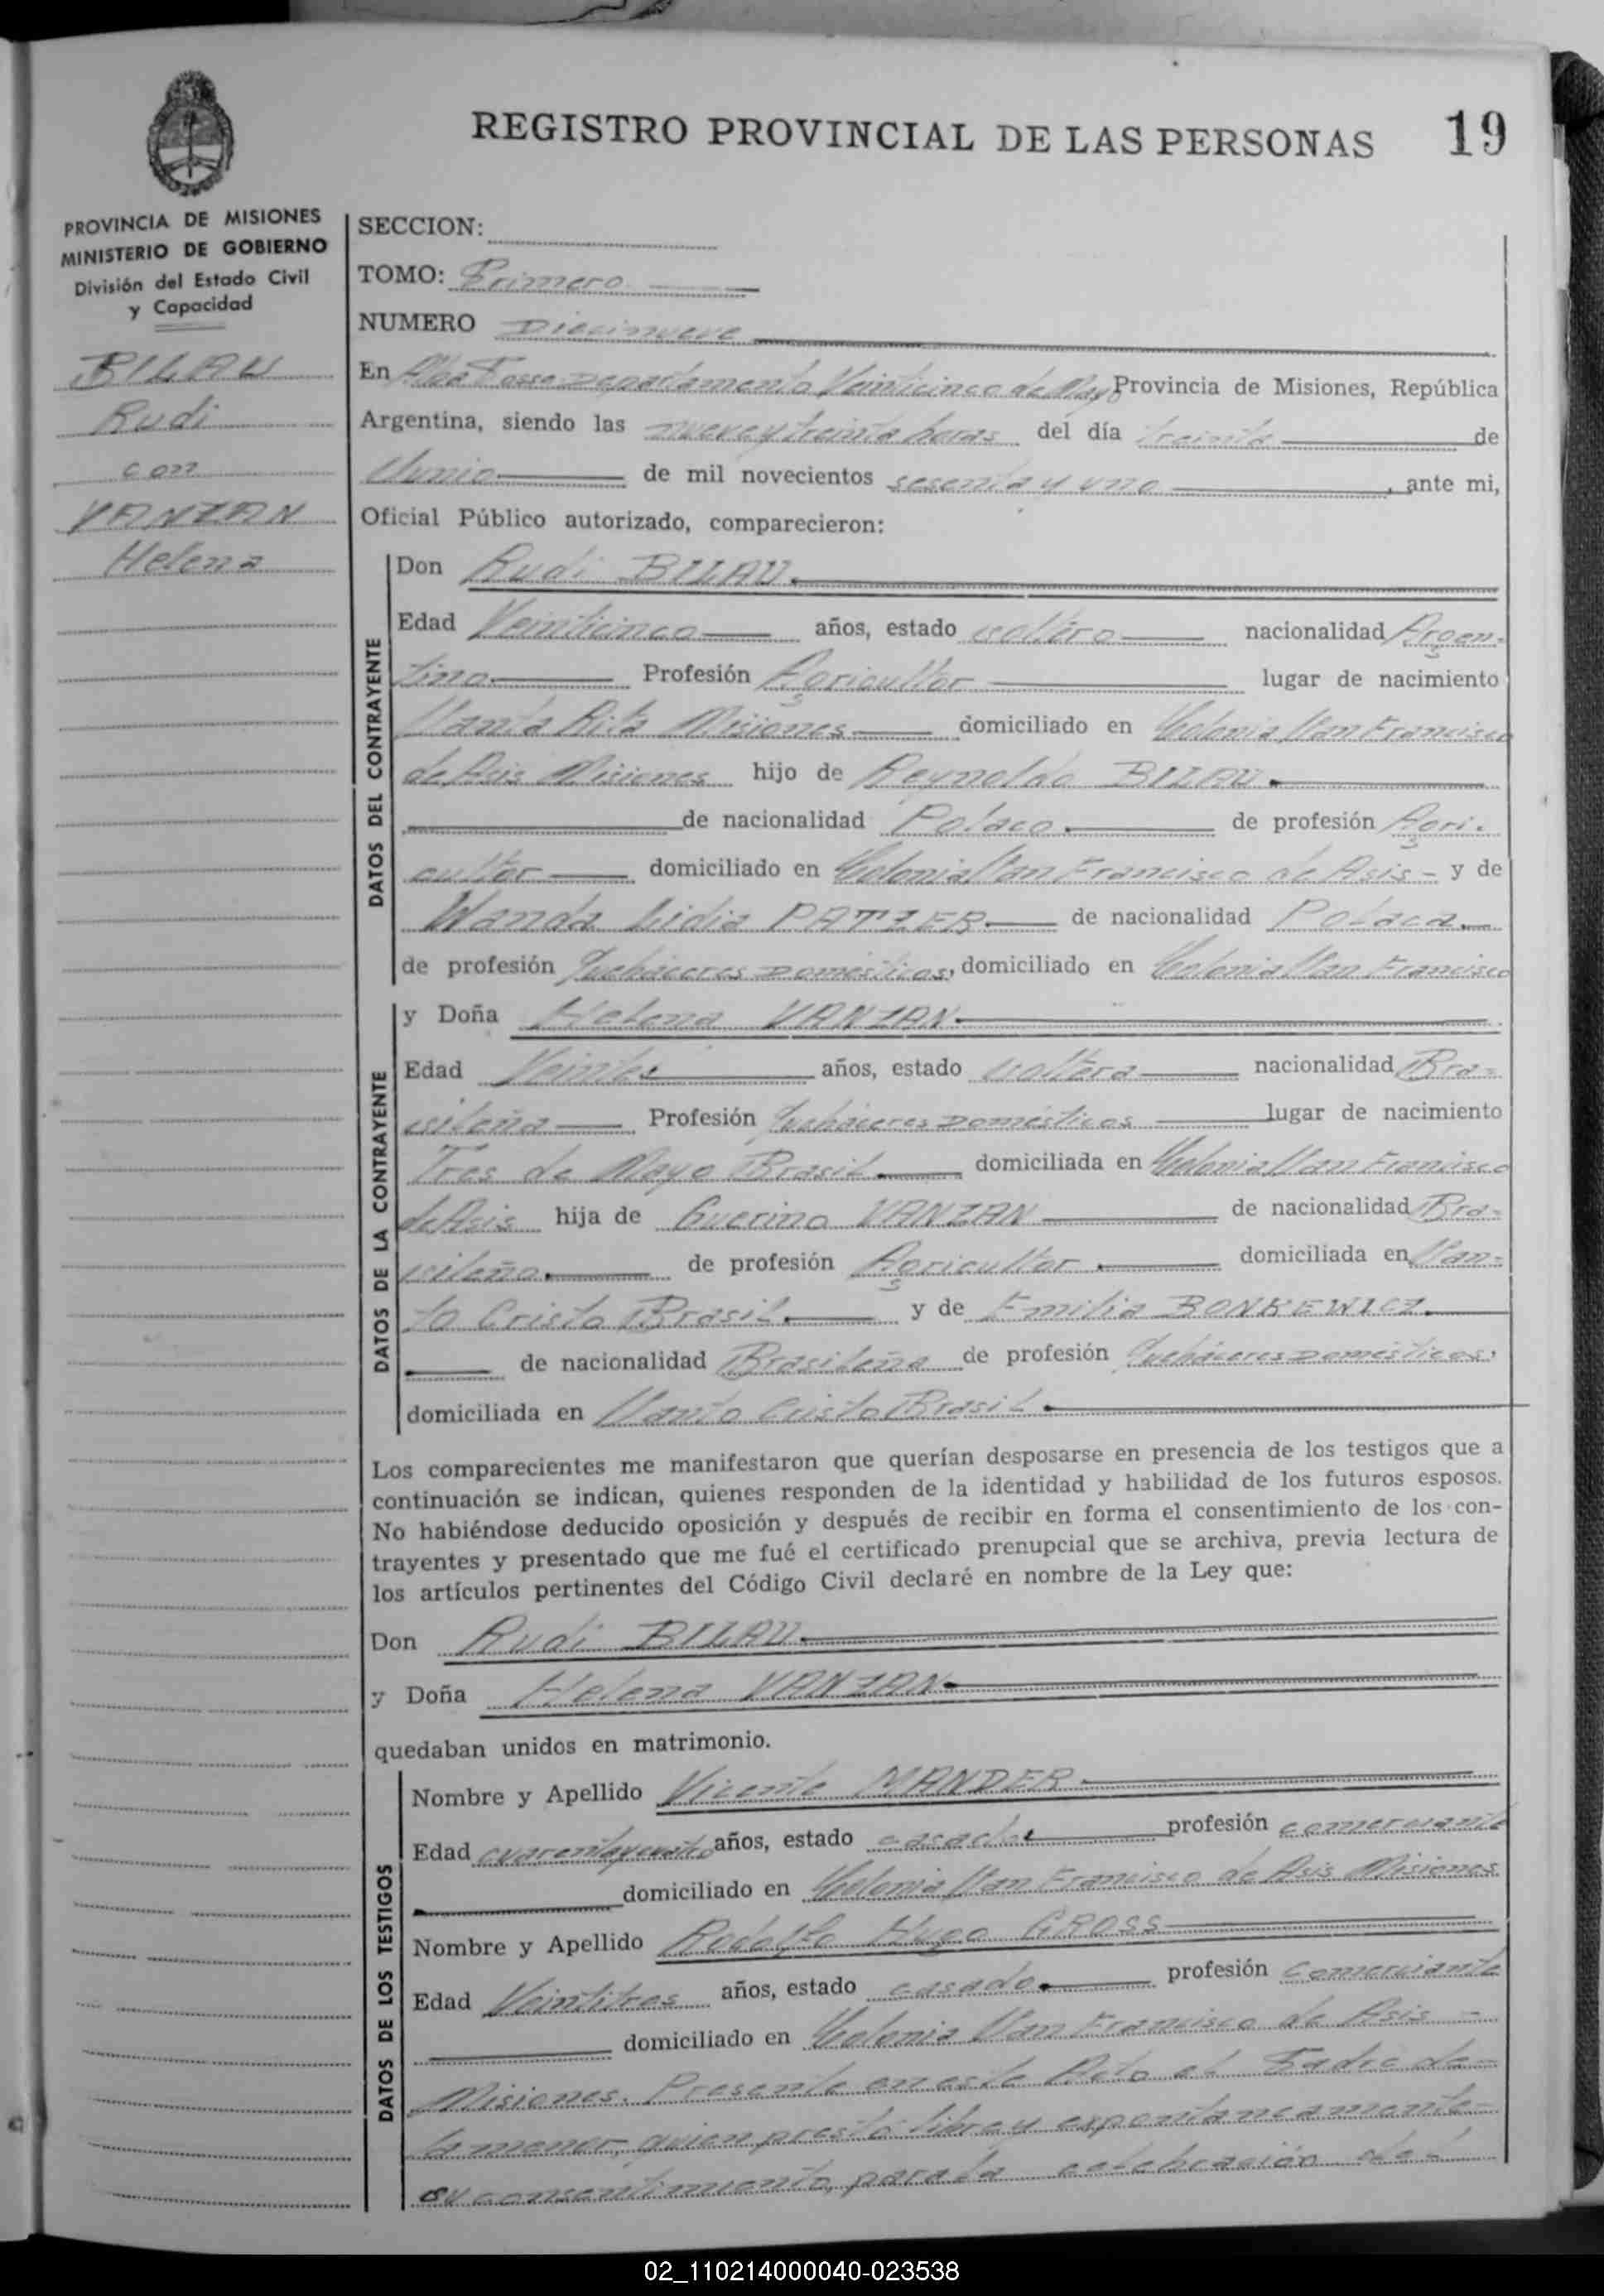 REGISTRO PROVINCIAL DE LAS PERSONAS 19
PROVINCIA DE MISIONES
MINISTERIO DE GOBIERNO
División del Estado Civil
y Capacidad
BILAU
Rudi
con
VANZAN
Helena
SECCION:
TOMO: Primero
NUMERO Diecinueve
En Alba Posse Departamento Veinticinco de Mayo Provincia de Misiones, República
Argentina, siendo las nueve y treinta horas del día treinta de
Junio de mil novecientos sesenta y uno, ante mi,
Oficial Público autorizado, comparecieron:
DATOS DEL CONTRAYENTE
Don Rudi BILAU
Edad Veinticinco años, estado soltero nacionalidad Argen-
tino Profesión Agricultor lugar de nacimiento
Santa Rita Misiones domiciliado en Colonia San Francisco
de Asis Misiones hijo de Reynoldo BILAU
de nacionalidad Polaco de profesión Agri-
cultor domiciliado en Colonia San Francisco de Asis - y de
Wanda Lidia PATZER de nacionalidad Polaca
de profesión Quehaceres Domésticos, domiciliado en Colonia San Francisco
DATOS DE LA CONTRAYENTE
y Doña Helena VANZAN
Edad Veinte años, estado soltera nacionalidad Bra-
sileña Profesión Quehaceres Domésticos lugar de nacimiento
Tres de Mayo Brasil domiciliada en Colonia San Francisco
de Asis hija de Guerino VANZAN de nacionalidad Bra-
sileño de profesión Agricultor domiciliada en San-
to Cristo Brasil y de Emilia BONKEWICZ
de nacionalidad Brasileña de profesión Quehaceres Domésticos,
domiciliada en Santo Cristo Brasil
Los comparecientes me manifestaron que querían desposarse en presencia de los testigos que a
continuación se indican, quienes responden de la identidad y habilidad de los futuros esposos.
No habiéndose deducido oposición y después de recibir en forma el consentimiento de los con-
trayentes y presentado que me fué el certificado prenupcial que se archiva, previa lectura de
los artículos pertinentes del Código Civil declaré en nombre de la Ley que:
Don Rudi BILAU
y Doña Helena VANZAN
quedaban unidos en matrimonio.
DATOS DE LOS TESTIGOS
Nombre y Apellido Vicente MANDER
Edad cuarentaycuatro años, estado casado profesión comerciante
domiciliado en Colonia San Francisco de Asis Misiones
Nombre y Apellido Rodolfo Hugo GROSS
Edad Veintitres años, estado casado profesión comerciante
domiciliado en Colonia San Francisco de Asis -
Misiones. Presente en este Acto el Padre de-
la menor, quien prestó libre y expontaneamente-
su consentimiento, para la celebración del
02_110214000040-023538